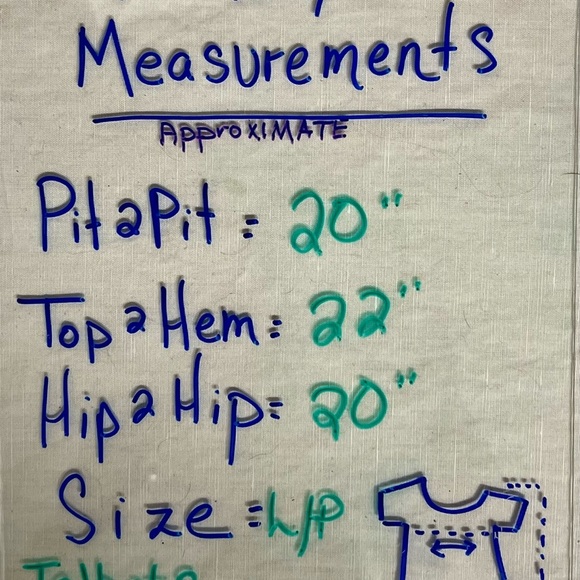 Measurements
APProXIMATE
Pit2Pit = 20"
Top2Hem = 22"
Hip2Hip = 20"
Size = L/P